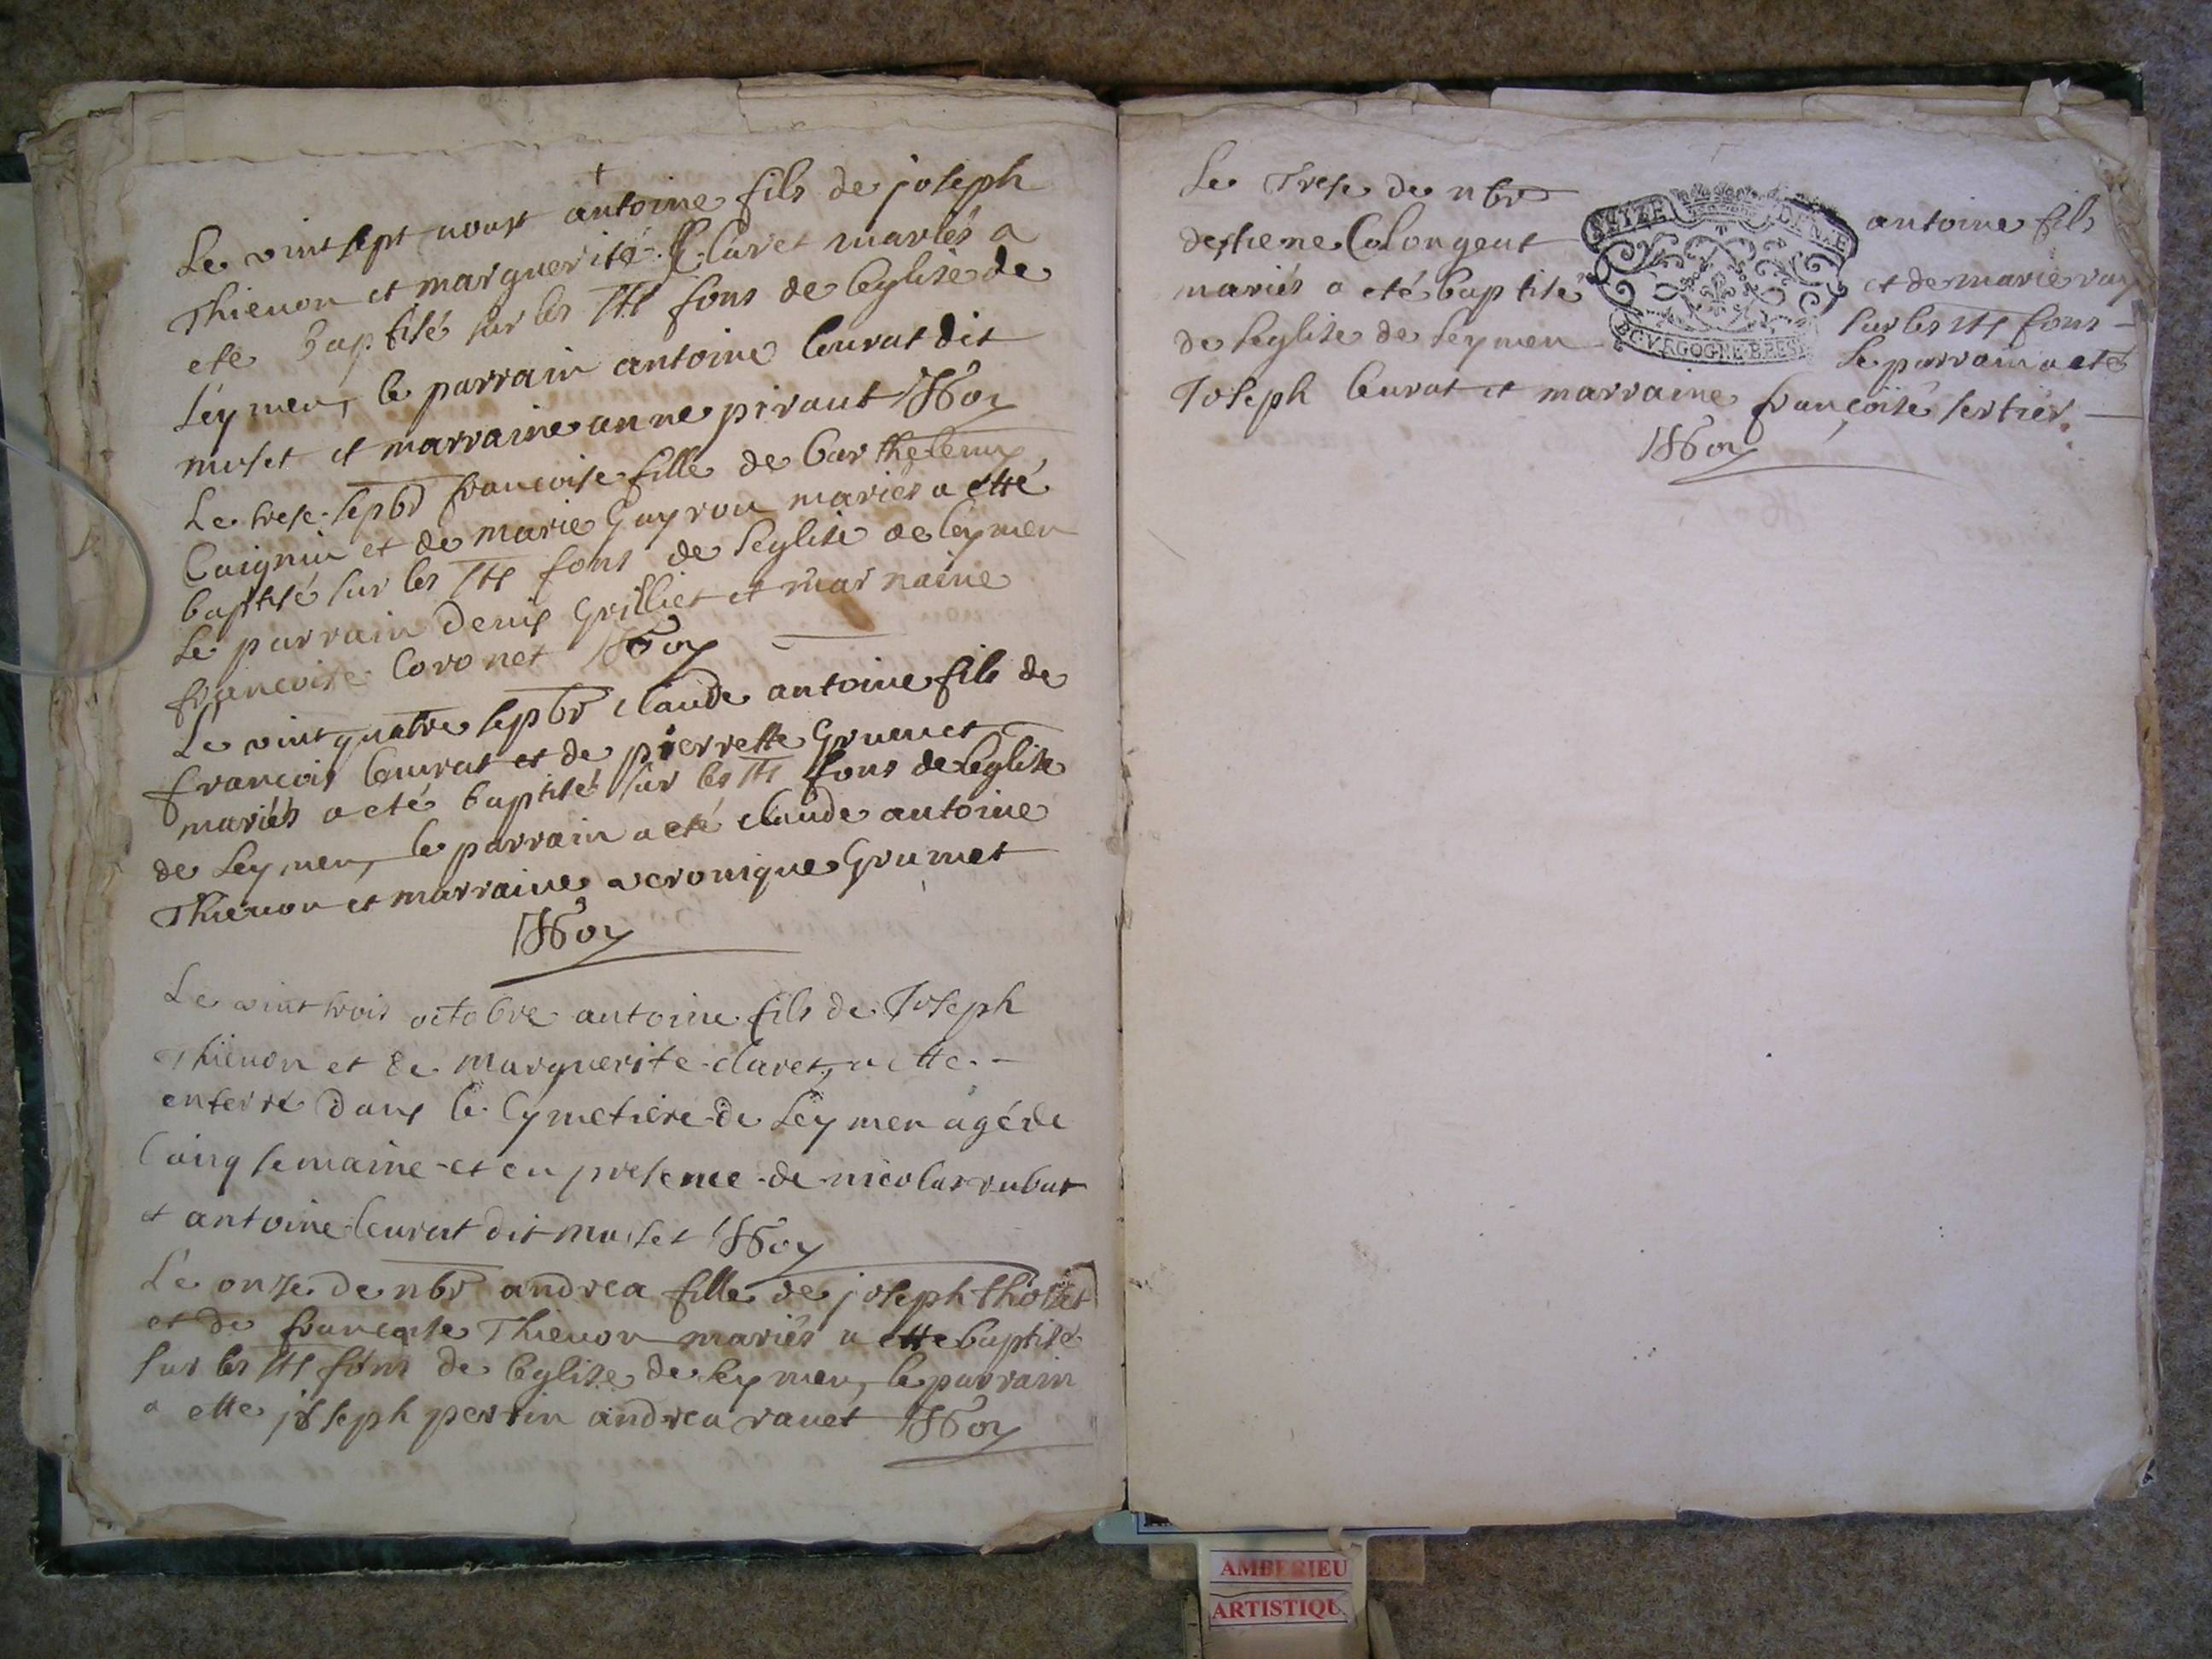 Le vintsept aoust antoine fils de joseph
Thievon et marguerite Claret mariés a
eté baptisé sur les sts fons de leglise de
Leymen, le parrain antoine leurat dit
muset et marraine anne piraut
Le trese sepbr francoise fille de barthelemy
Cuignin et de marie Guyrou mariés a etté
baptisé sur les sts fons de leglise de leymen
Le parrain denis Grilliet et marraine
francoise Coronet
Le vintquatre sepbr claude antoine fils de
francois leurat et de pierrette Grumet
mariés a eté baptisé sur les sts fons de leglise
de Leymen, le parrain a eté claude antoine
Thievon et marraine veronique Grumet
Le vint trois octobre antoine fils de Joseph
Thievon et de Marguerite claret, a ette
enterré dans le Cymetiere de Leymen agé de
Cainq semaine et en presence de nicolas rubat
et antoine leurat dit muset
Le onse de nbr andrea fille de joseph
et de francoise Thievon mariés a ette baptisé
sur les sts fons de leglise de leymen, le parrain
a ette joseph perrin andrea ravet
Le Trese de nbr antoine fils
destiene Colongeat et de marie
mariés a eté baptisé sur les sts fons
de leglise de Leymen le parrain a eté
Joseph leurat et marraine francoise sertier.
BOVRGOGNE·BRESSE
AMBERIEU
ARTISTIQU